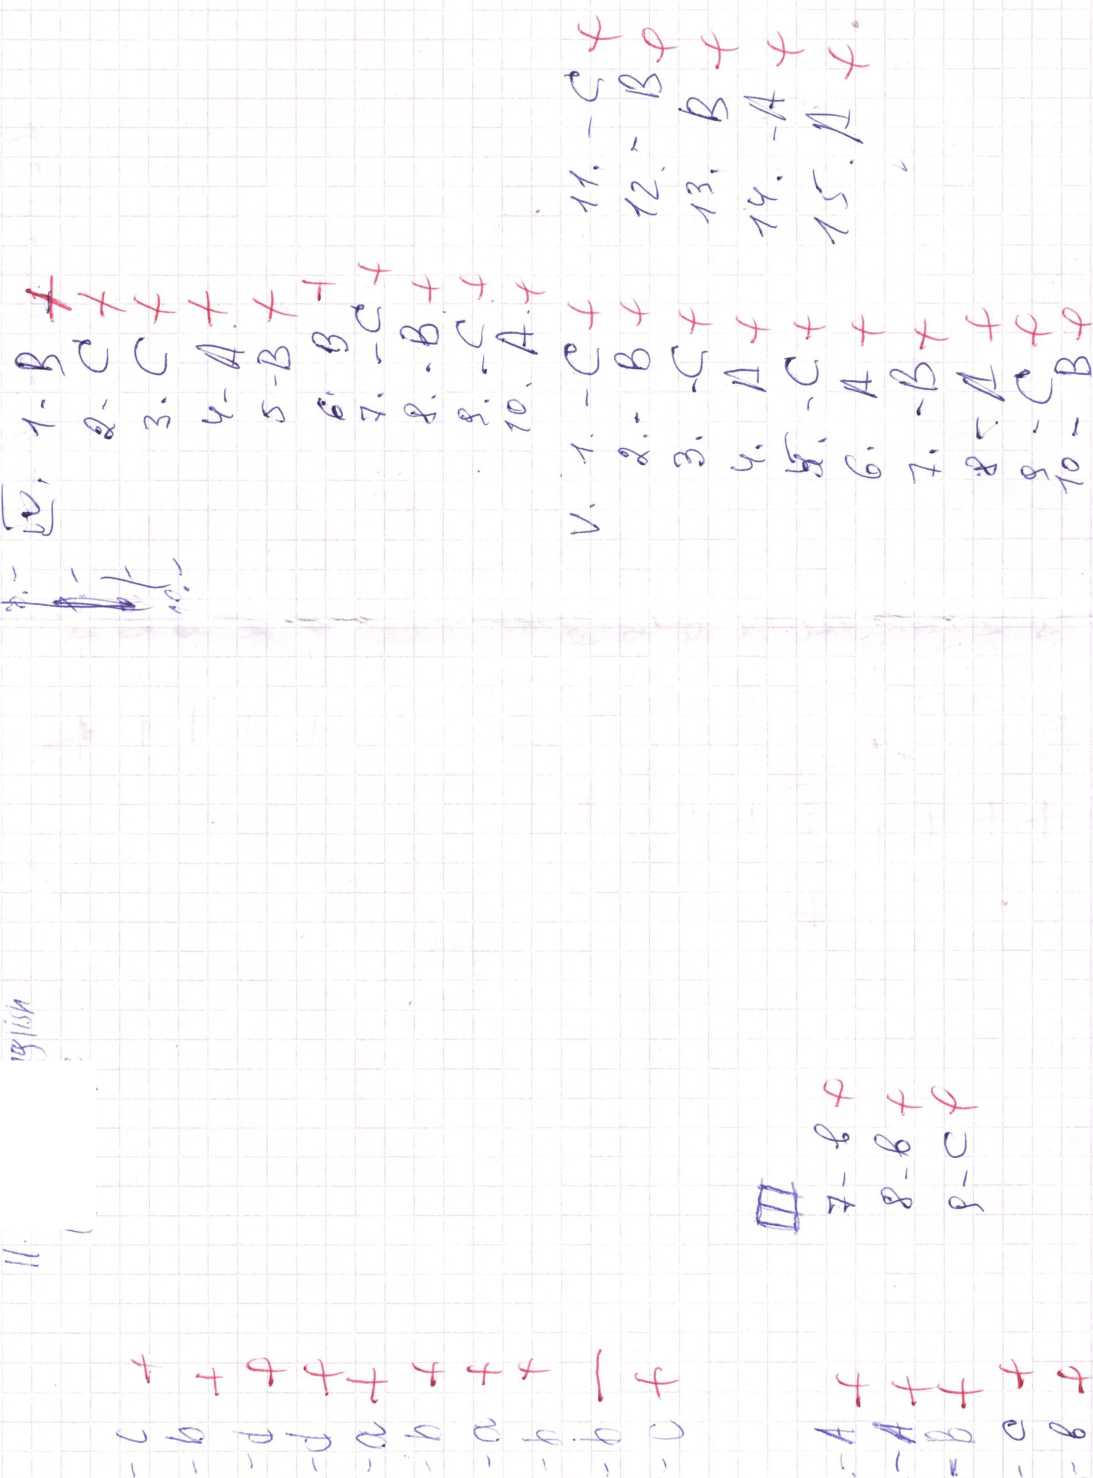 11.
- c +
- b +
- d +
- d +
- a +
- b +
- a +
- b +
- b –
- c +
- A +
- A +
- B +
- C +
- B +
III
7 - b +
8 - b +
9 - C +
IV. 1. B +
2. C +
3. C +
4 - A. +
5 - B +
6. B +
7. - C +
8. - B +
9. - C +
10. A. +
V. 1. - C +
2. - B +
3. - C +
4. A +
5. - C +
6. A +
7. - B +
8 - A +
9 - C +
10 - B +
11. - C +
12. - B +
13. B +
14. - A +
15. A +.